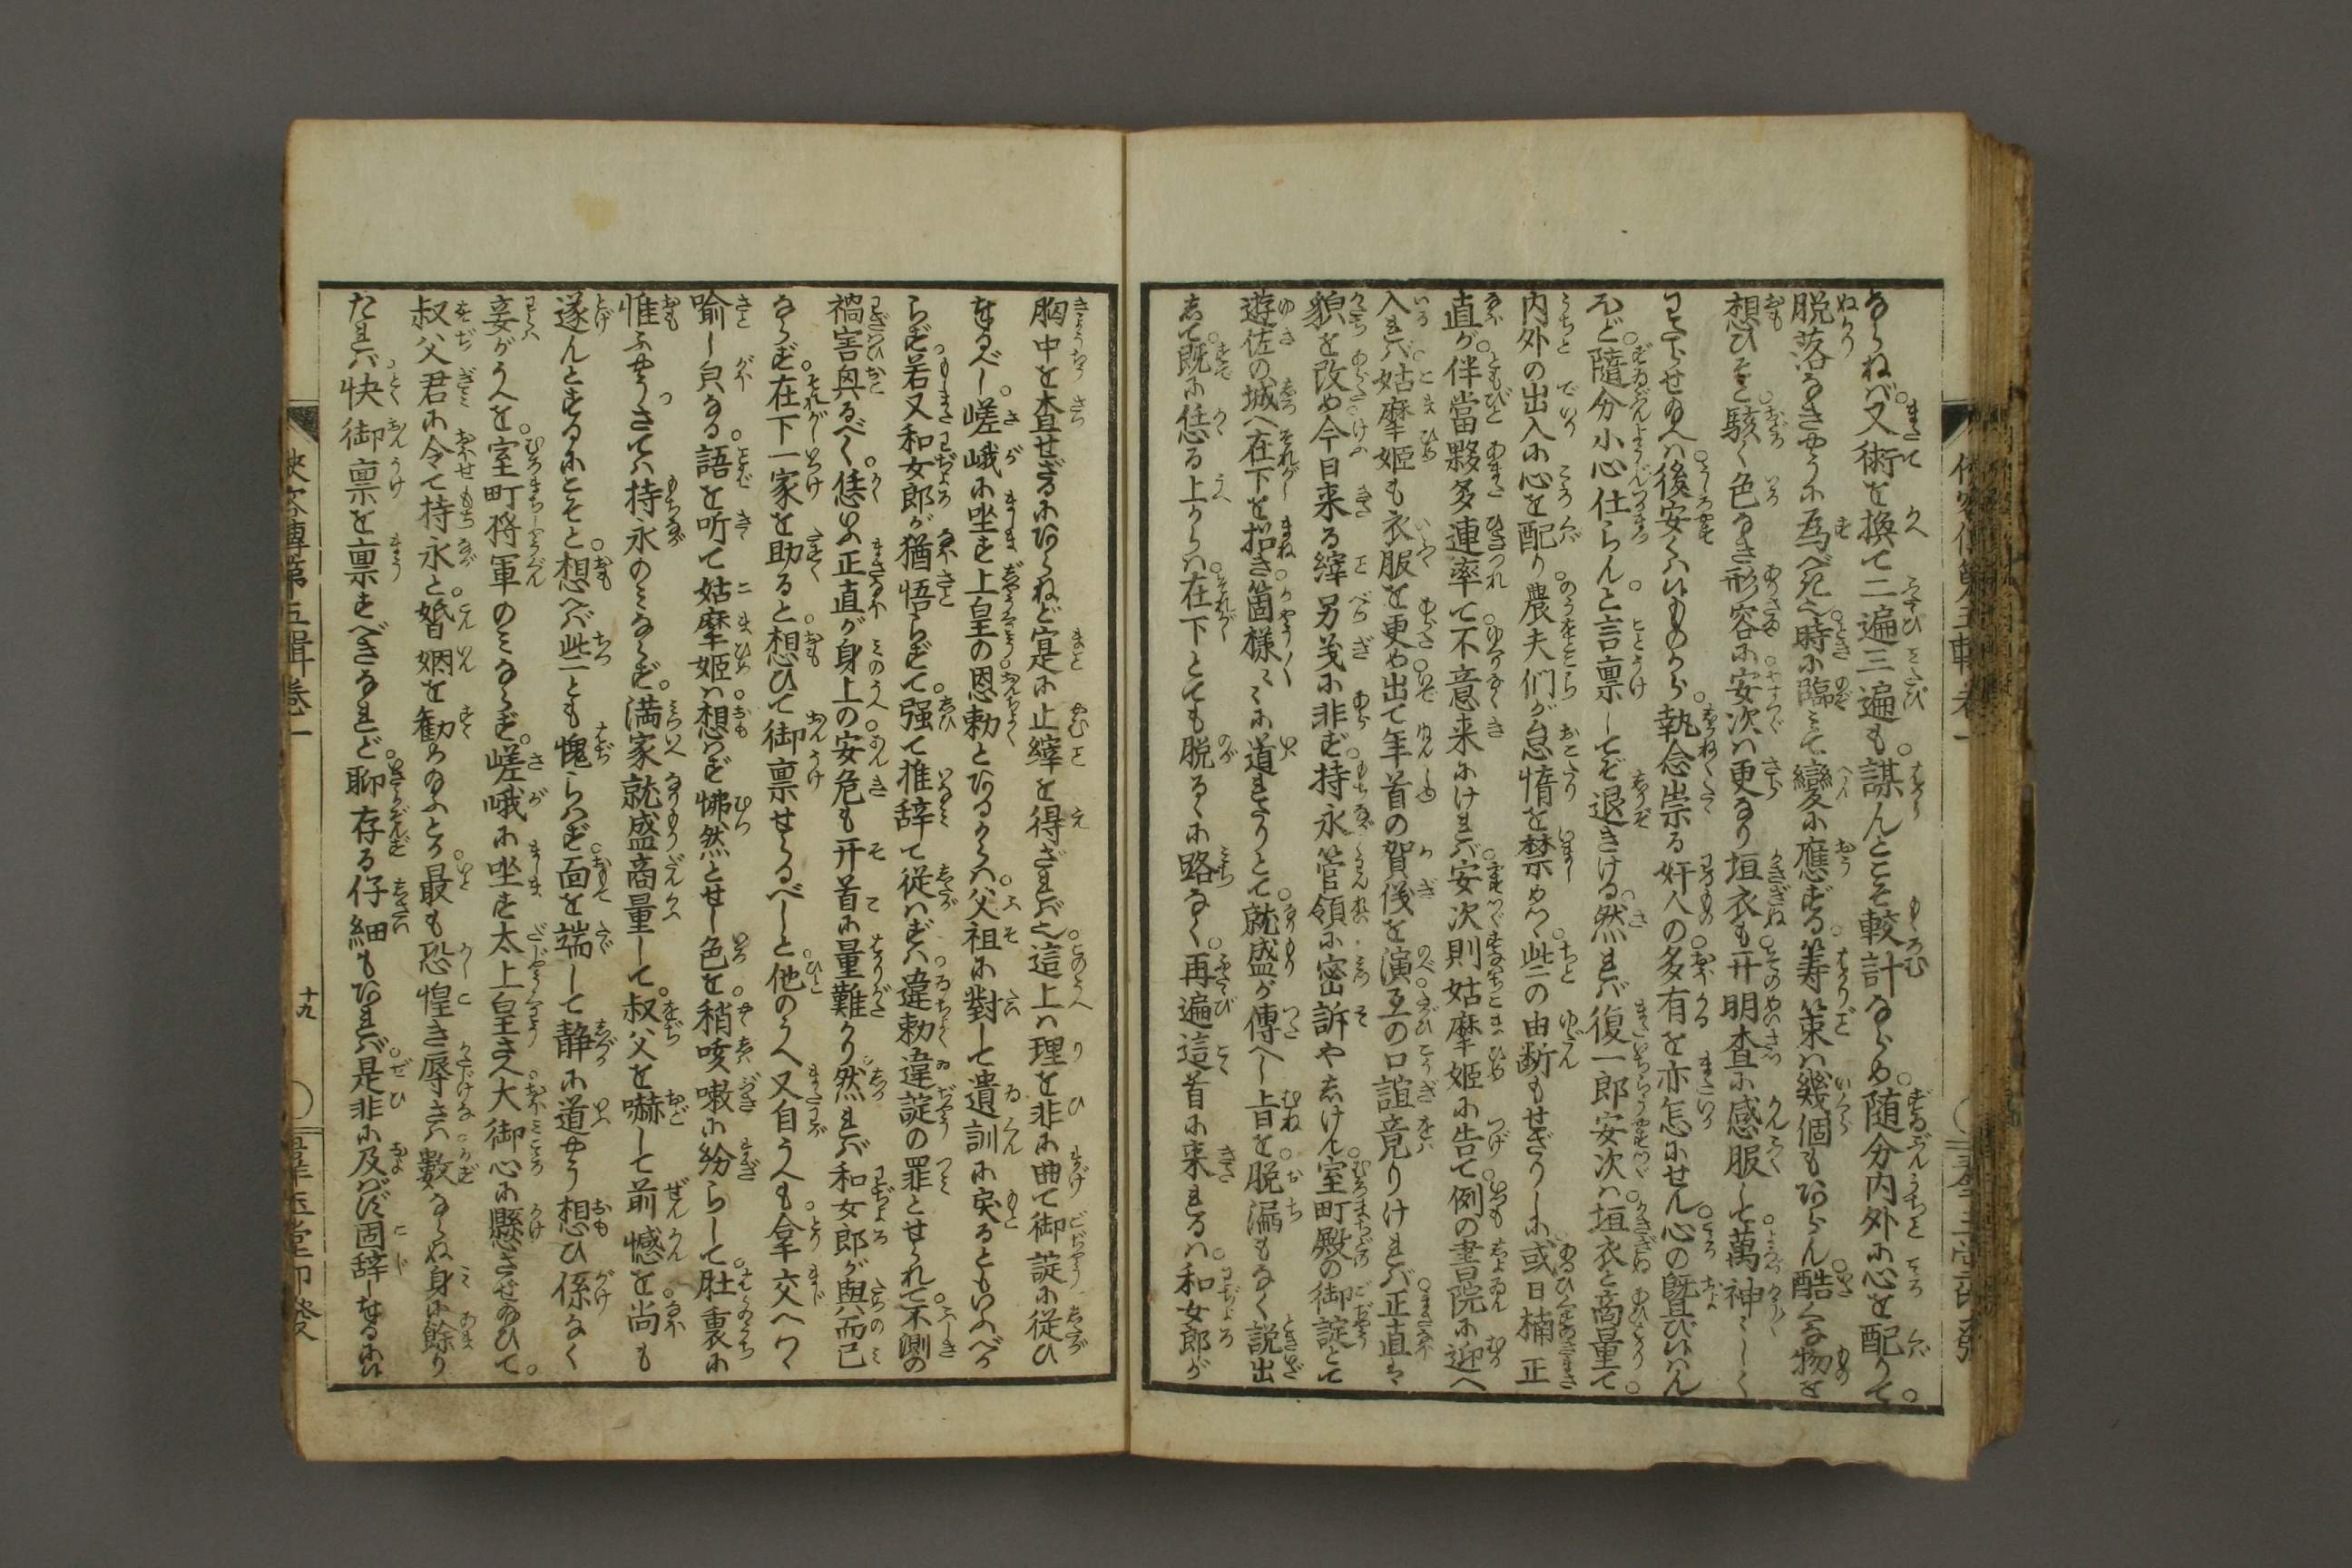 ならねば。又術を換て二遍三遍も。謀んとこそ較計ならめ。随分内外に心を配りて。
脱落なきやうに為べし。時に臨みて變に應ずる。籌策は幾個もあらん。酷く物を
想ひそと。駭く色なき形容に。安次は更なり垣衣も。开明査に感服して。萬神しく
せ給へは。後安くはいものから。執念祟る奸人の。多有を亦怎にせん。心の曁びいはん
ほど。隨分小心仕らんと言稟してぞ退きける。然れば復一郎安次は。垣衣と商量て。
内外の出入に心を配り。農夫们が怠惰を禁めつ。些の由断もせざりしに。或日楠正
直が。伴當夥多連率て。不意来にければ。安次則姑摩姫に告て。例の書院に迎へ
入れば。姑摩姫も衣服を更め。出て年首の賀儀を演。互の口誼竟りければ。正直は
貌を改め。今日来る縡別義に非ず。持永管領に密訴やしけん。室町殿の御諚とて
遊佐の城へ在下を招き。箇様々々に道れたりとて。就盛が傳へし旨を。脱漏もなく説出
して。既に恁る上からは。在下とても脱るゝに路なく。再遍這首に来れるは。和女郎が
胸中を査せざるにあらねど。寔に止縡を得ざれば也。這上は理を非に曲て御諚に従ひ
をるべし。嵯峨に坐す上皇の恩勅とあるからは。父祖に對して遺訓に戻るともいふべか
らず。若又和女郎が猶悟らずして。强て推辞て従はずは。違勅違諚の罪とせられて。不測の
禍害與るべく。恁いふ正直が身上の。安危も开首に量難かり。然れば和女郎が與而已
ならず。在下一家を助ると。想ひて御稟せらるべしと。他のうへ又自うへも。拿交へつゝ
喩し㒵なる。語を听て姑摩姫は。想はず怫然とせし色を。稍咳嗽に紛らして。肚裏に
惟ふやう。さては持永のみならず。満家就盛商量して。叔父を嚇して前憾を。尚も
遂んとするにこそと。想へば些とも愧らはず。面を端して静に道やう。想ひ係なく
妾がうへを。室町将軍のみならず。嵯峨に坐す太上皇さへ。大御心に懸させ給ひて。
叔父君に令て持永と。婚姻を勸め給ふとか。最も恐惶き辱さは。數ならぬ身に餘り
たれば。快御稟を稟すべきなれど。聊存る仔細もあれば。是非に及ばず固辞しをるにい
侠客傳第五輯巻一
十九